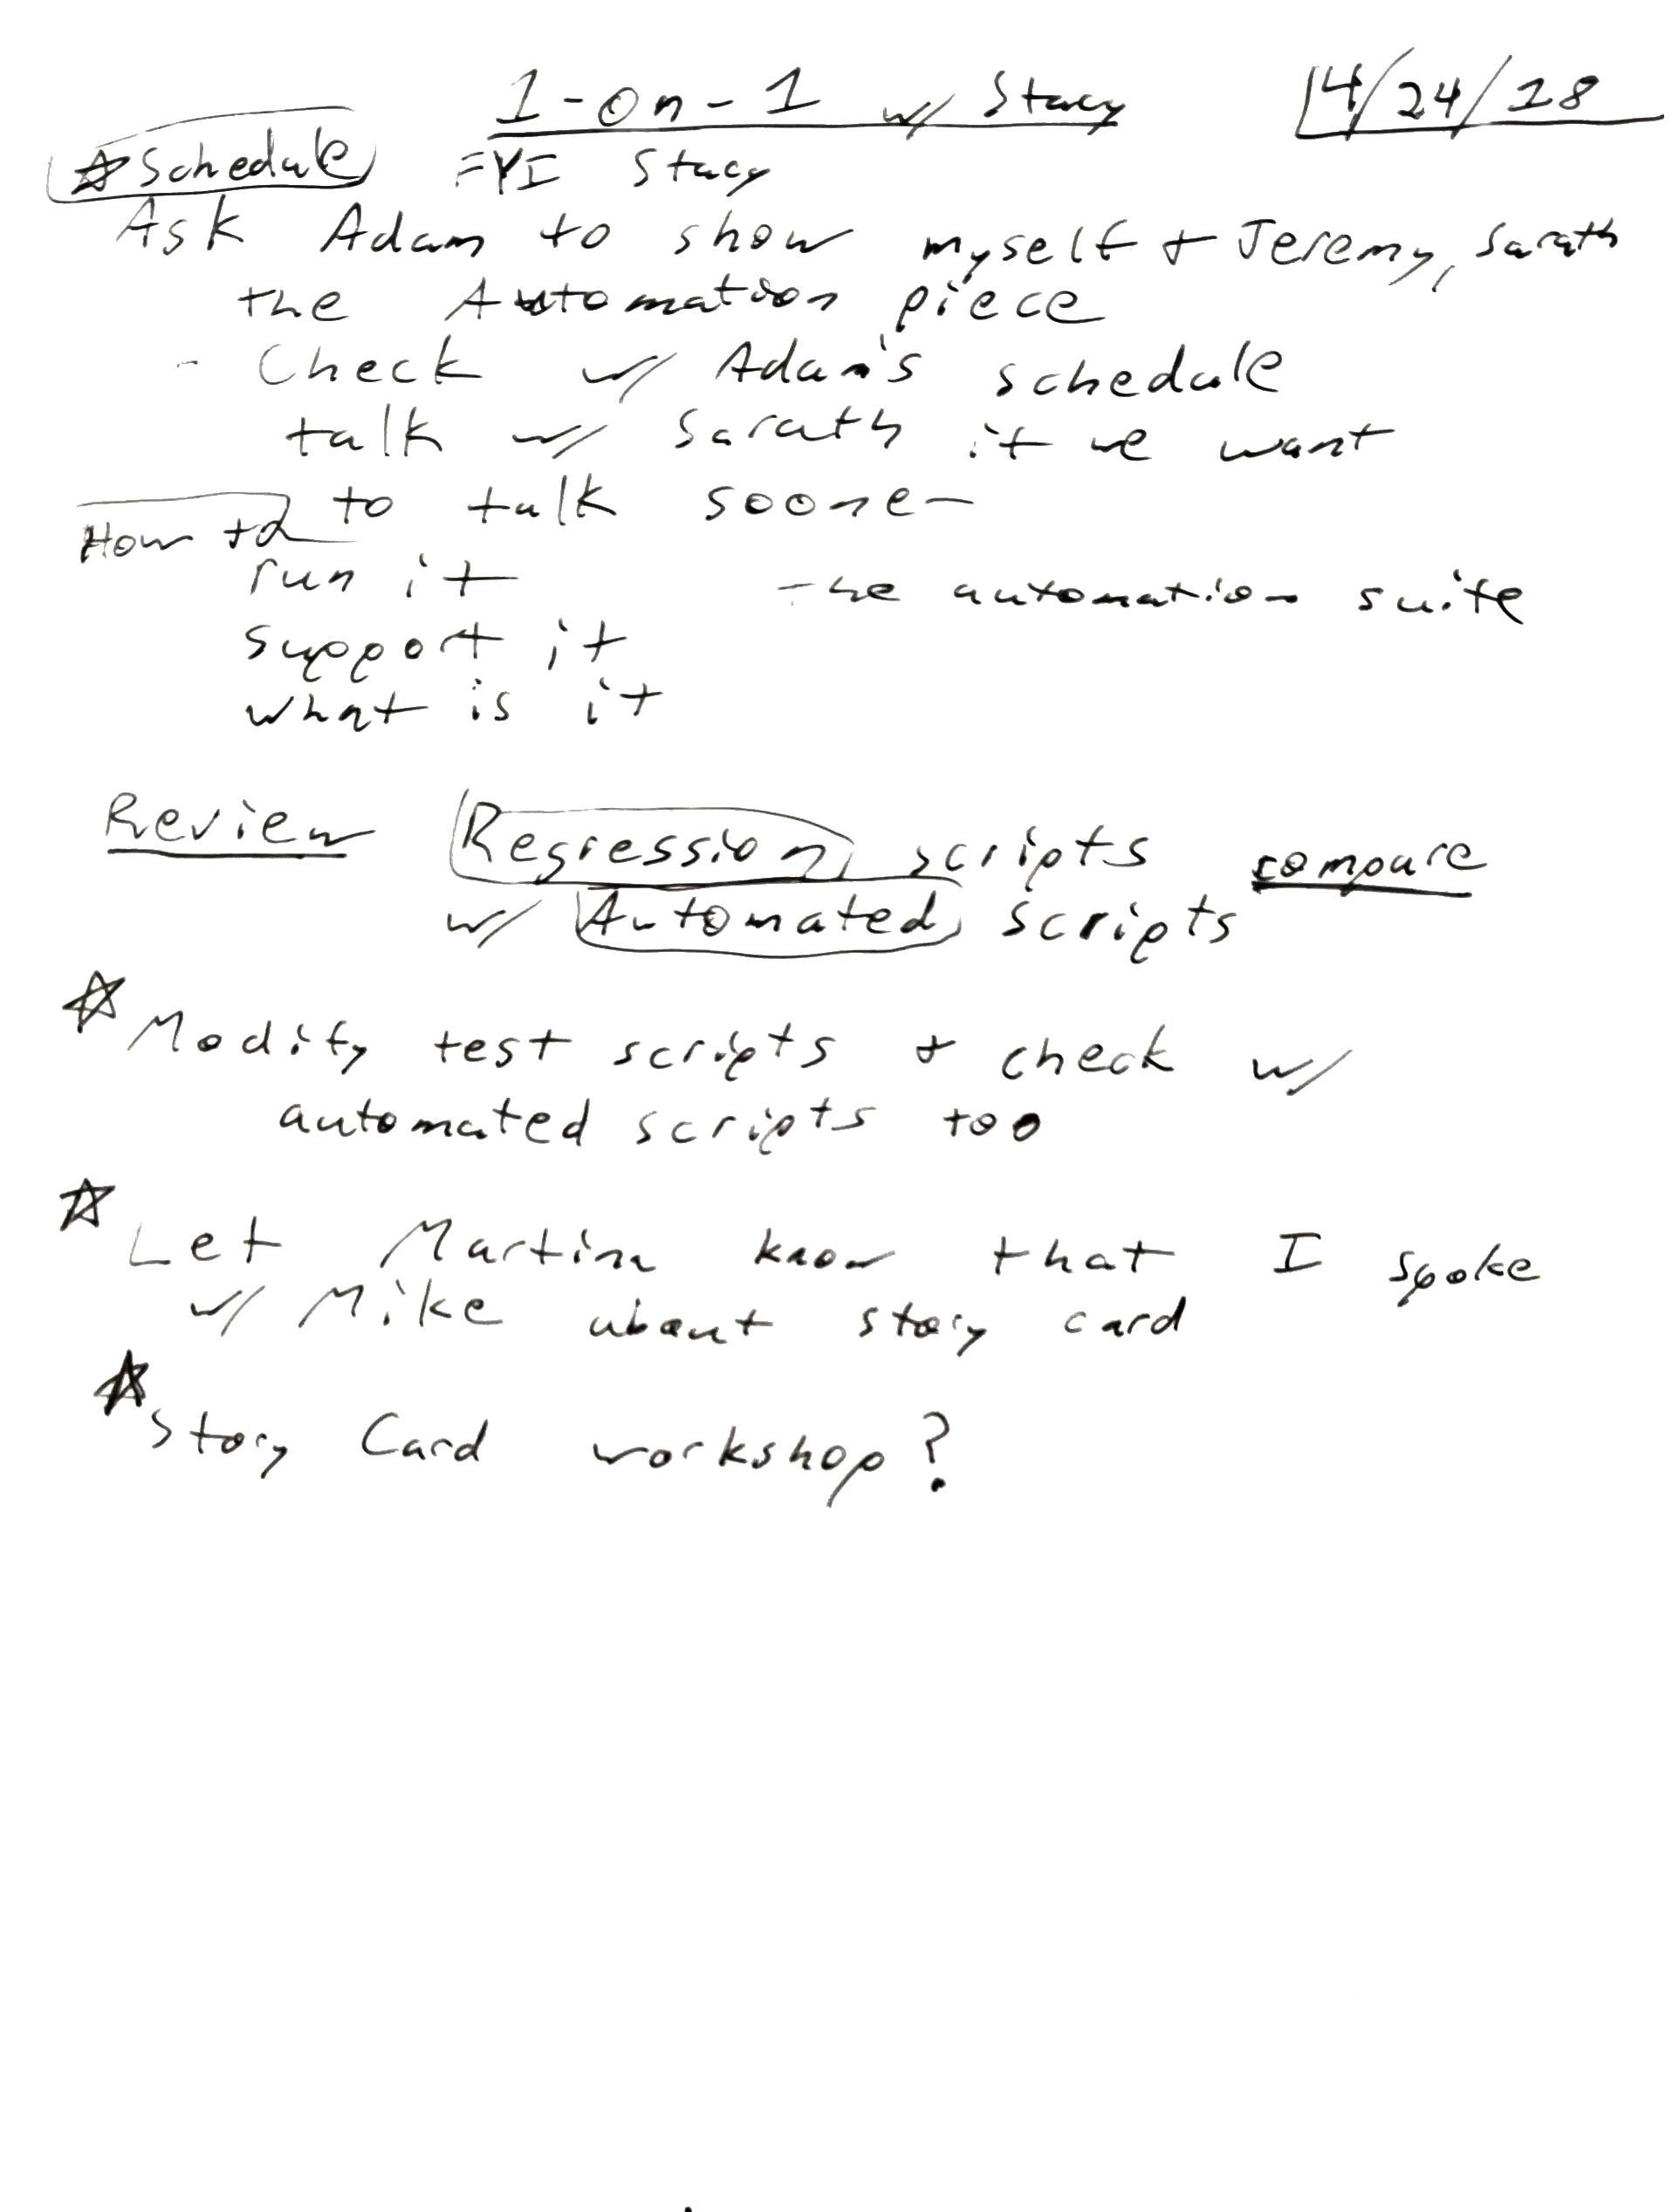 1-on-1 w/ Stacy 4/24/18
☆ Schedule FYI Stacy
Ask Adam to show myself + Jeremy, Sarath
the Automation piece
- Check w/ Adam's schedule
talk w/ Sarath if we want
to talk sooner
How to
run it the automation suite
support it
what is it
Review Regression scripts compare
w/ Automated scripts
☆ Modify test scripts + check w/
automated scripts too
☆ Let Martina know that I spoke
w/ Mike about story card
☆ Story Card workshop?